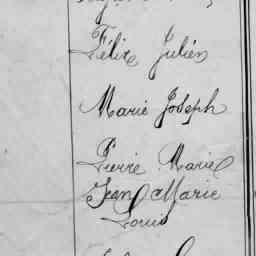 Félix Julien
Marie Joseph
Pierre Marie
Jean Marie
Louis